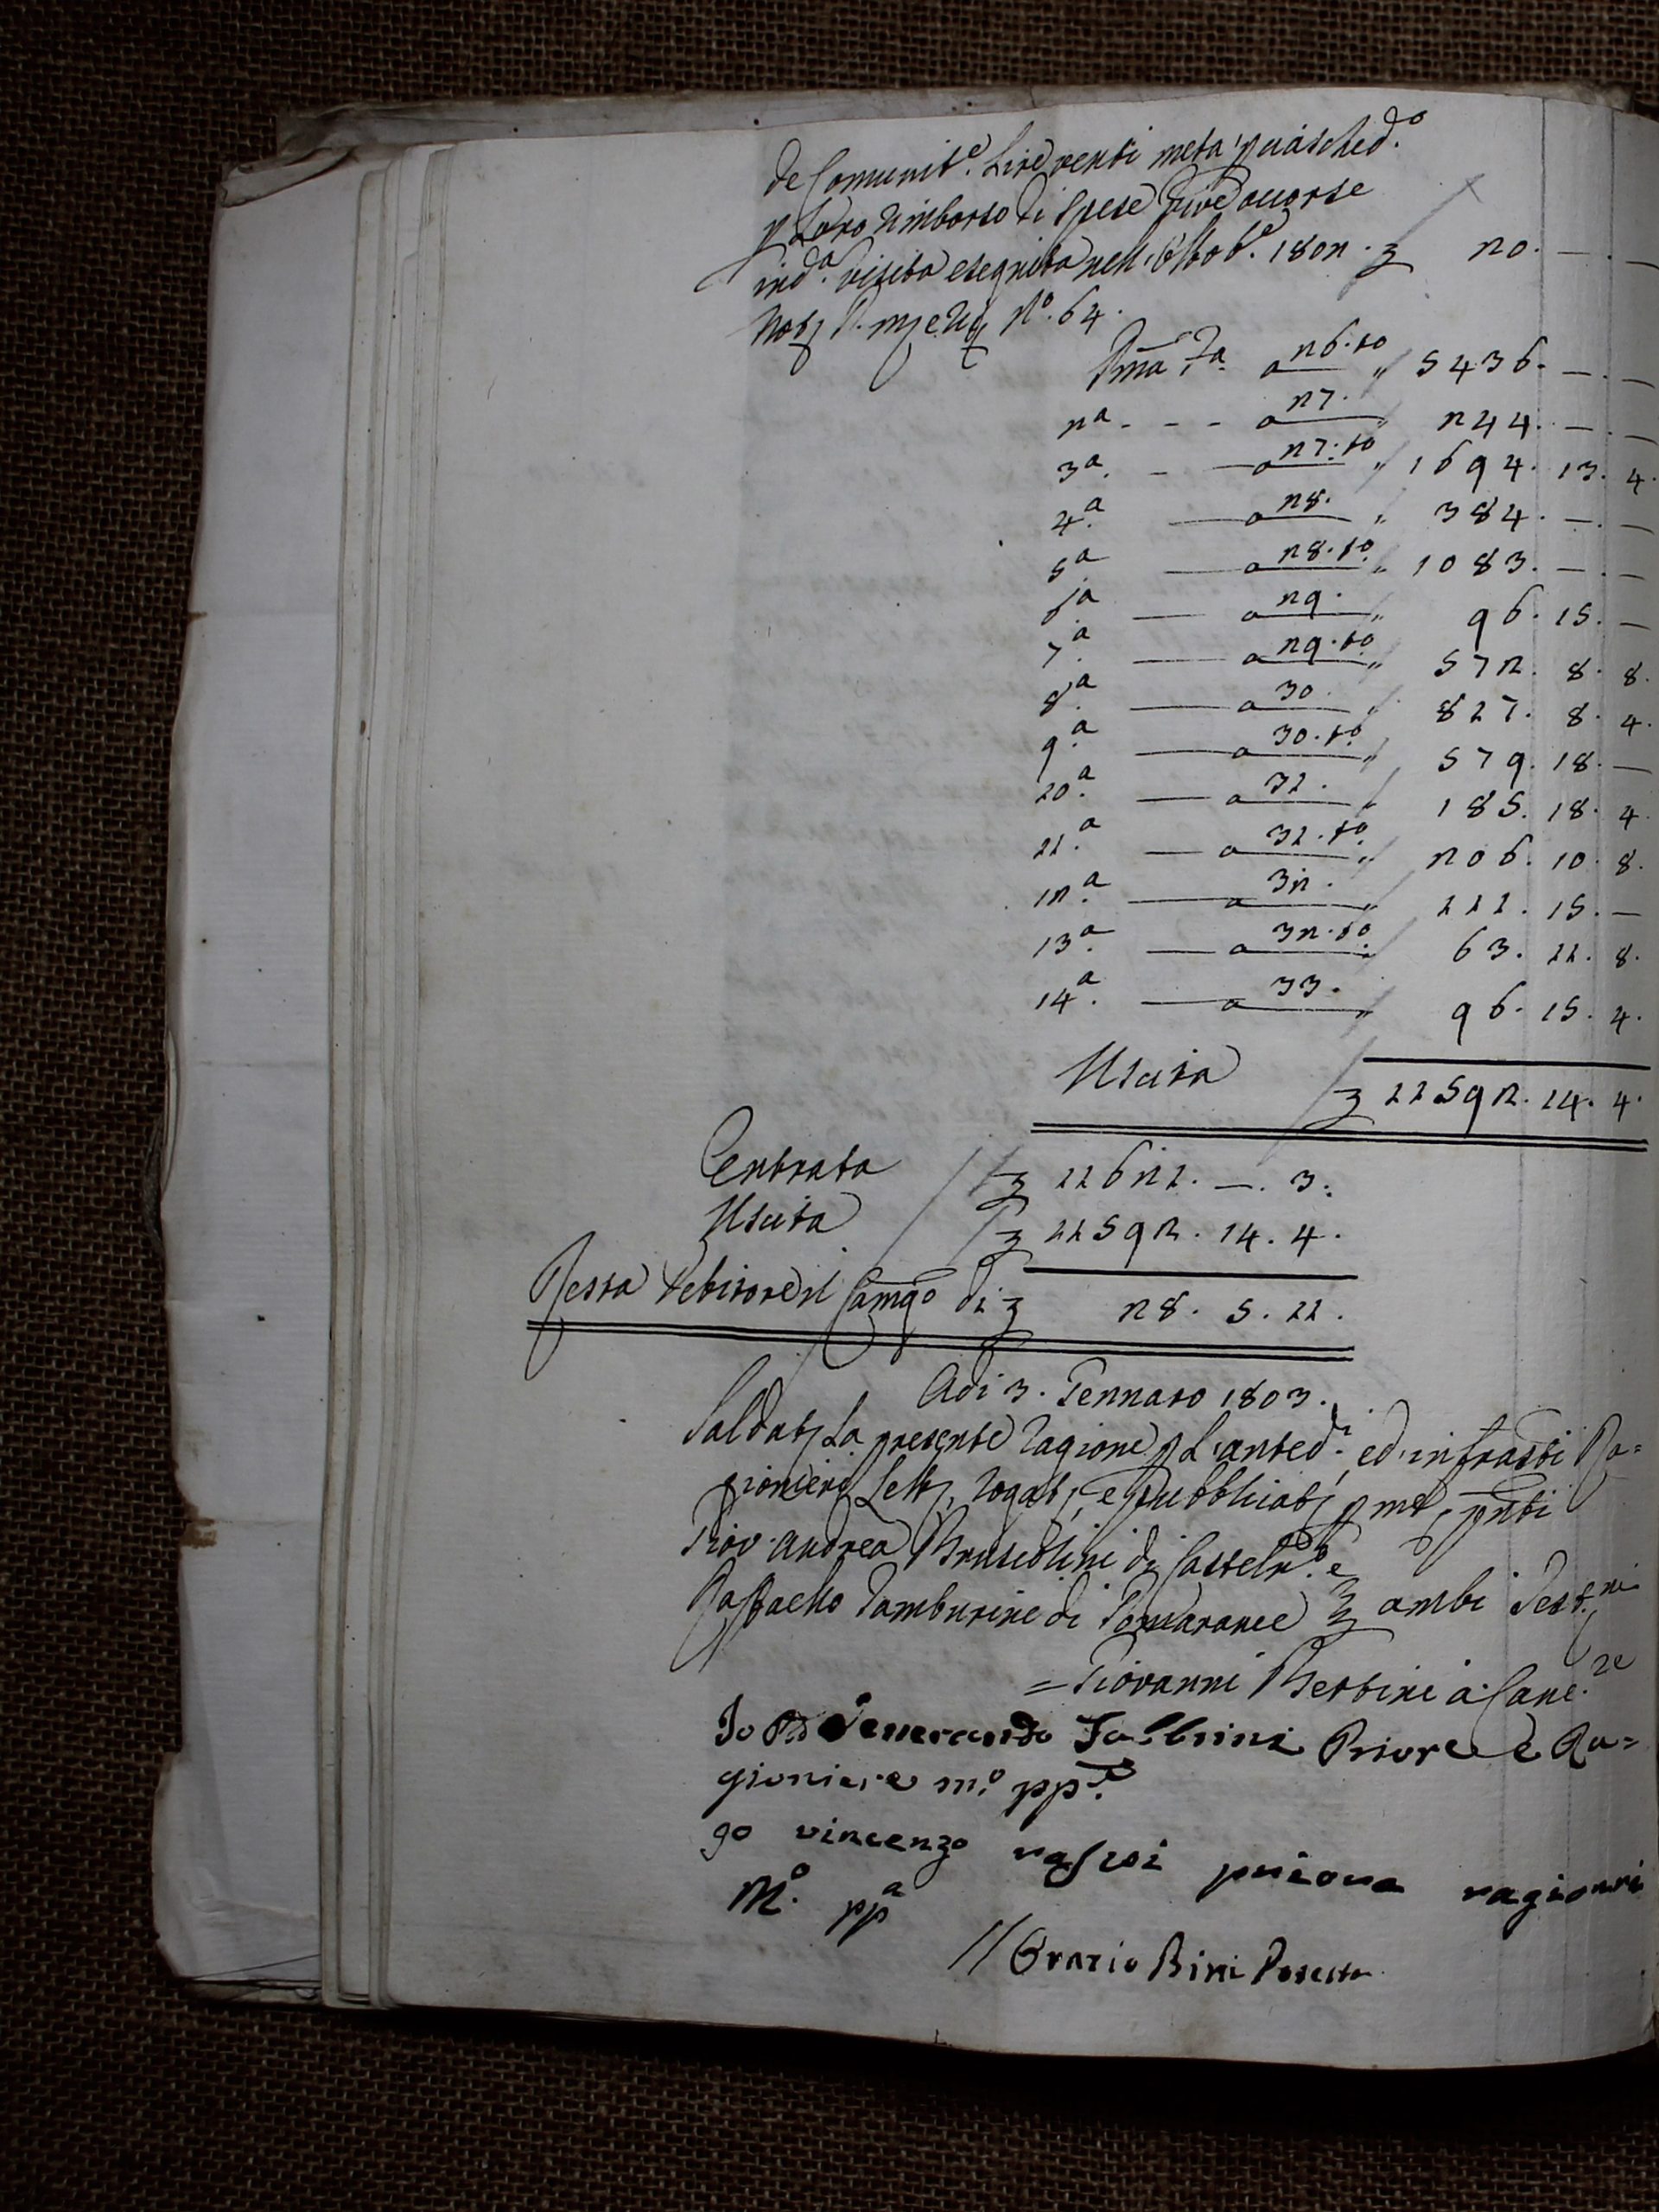 de Comunit.e Lire venti metà p ciasched.o
p Loro rimborso di Spese vive occorse
in d.a visita eseguita nell'Ottob.e 1802. £ 20. — . —
N.o 64.
Pma Fa. a 26.to " 5436. — . —
2a. - - - a 27. " 244. — . —
3a. — a 27.to " 1694. 13. 4.
4a. — a 28. " 384. — . —
5a. — a 28.to " 1083. — . —
6a. — a 29. " 96. 15. —
7a. — a 29.to " 572. 8. 8.
8a. — a 30. " 837. 8. 4.
9a. — a 30.to " 579. 18. —
10a. — a 31. " 185. 18. 4
11a. — a 31.to " 206. 10. 8.
12a. — a 32. " 111. 15. —
13a. — a 32.to " 63. 11. 8.
14a. — a 33. " 96. 15. 4.
Uscita £ 11592. 14. 4.
Entrata £ 11621. — . 3.
Uscita £ 11592. 14. 4.
Resta debitore il Camgo di £ 28. 5. 11.
Adi 3. Gennaro 1803.
Saldat La presente ragione p L'anted.i ed infratti Ra=
gionieri Lett, rogat, e pubblicat p me, pnti
Giov. Andrea Bruscolini di Casteln.o e
Raffaello Tamburini di Pomarance ambi Test.ni
= Giovanni Bertini a Canc.re
Io Venerando Falbrini Priore e Ra=
gioniere m.o pp.a
Io vincenzo priore ragionri
M.o pp.a
// Orazio Bini Potestà